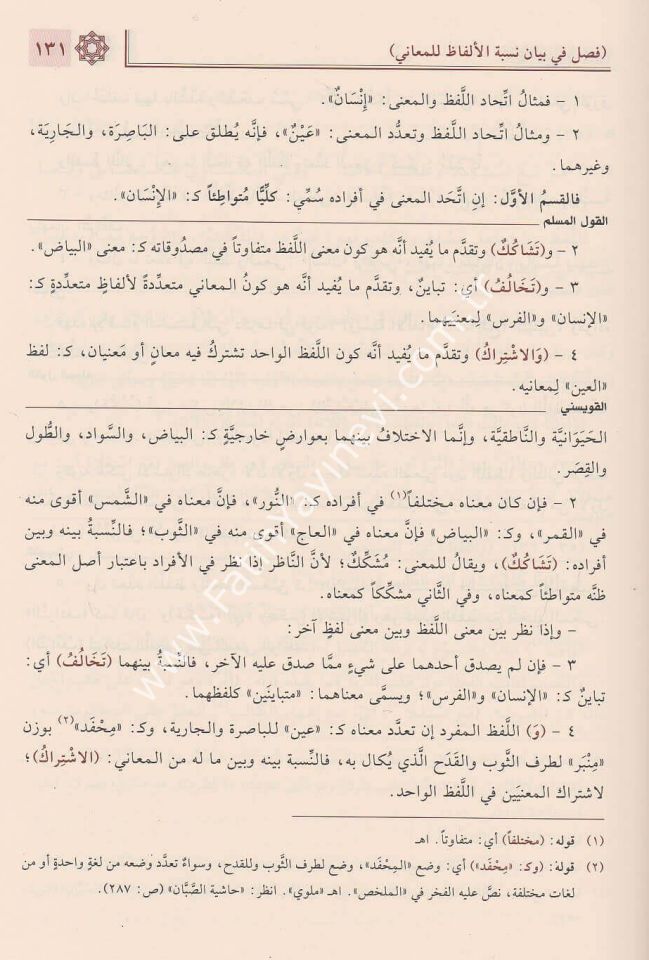 (فصل في بيان نسبة الألفاظ للمعاني)
١٣١
١ - فمثالُ اتِّحاد اللَّفظ والمعنى: «إِنْسَانٌ».
٢ - ومثالُ اتِّحاد اللَّفظ وتعدُّد المعنى: «عَيْنٌ»، فإنَّه يُطلق على: البَاصِرَة، والجَارِيَة،
وغيرهما.
فالقسمُ الأوَّل: إنِ اتَّحَد المعنى في أفراده سُمِّي: كلِّيًّا مُتواطِئاً كـ: «الإِنْسَان».
القول المسلم
٢ - و(تَشَاكُكٌ) وتقدَّم ما يُفيد أنَّه هو كون معنى اللَّفظ متفاوتاً في مصدُوقاته كـ: معنى «البياض».
٣ - و(تَخَالُفٌ) أي: تباينٌ، وتقدَّم ما يُفيد أنَّه هو كونُ المعاني متعدِّدةً لألفاظٍ متعدِّدةٍ كـ:
«الإنسان» و«الفرس» لِمعنيَيهما.
٤ - (وَالاشْتِرَاكُ) وتقدَّم ما يُفيد أنَّه كون اللَّفظ الواحد تشتركُ فيه معانٍ أو مَعنيان، كـ: لفظ
«العين» لِمعانيه.
القويسني
الحَيَوَانيَّة والنَّاطقيَّة، وإنَّما الاختلافُ بينهما بعوارضَ خارجيَّةٍ كـ: البياض، والسَّواد، والطُّول
والقِصَر.
٢ - فإن كان معناه مختلفاً(١) في أفراده كـ: «النُّور»، فإنَّ معناه في «الشَّمس» أقوى منه
في «القمر»، وكـ: «البياض» فإنَّ معناه في «العاج» أقوى منه في «الثَّوب»؛ فالنِّسبةُ بينه وبين
أفراده: (تَشَاكُكٌ)، ويقالُ للمعنى: مُشَكِّكٌ؛ لأنَّ النَّاظر إذا نظر في الأفراد باعتبار أصل المعنى
ظنَّه متواطئاً كمعناه، وفي الثَّاني مشكِّكاً كمعناه.
- وإذا نظر بين معنى اللَّفظ وبين معنى لفظٍ آخر:
٣ - فإن لم يصدق أحدهما على شيءٍ ممَّا صدق عليه الآخر، فالنِّسبةُ بينهما (تَخَالُفٌ) أي:
تباينٌ كـ: «الإنسان» و«الفرس»؛ ويسمَّى معناهما: «متباينَين» كلفظهما.
٤ - (وَ) اللَّفظ المفرد إن تعدَّد معناه كـ: «عين» للباصرة والجارية، وكـ: «مِحْفَد»(٢) بوزن
«مِنْبَر» لطرف الثَّوب والقَدَح الَّذي يُكال به، فالنِّسبة بينه وبين ما له من المعاني: (الاشْتِرَاكُ)؛
لاشتراك المعنيَين في اللَّفظ الواحد.
(١) قوله: (مختلفاً) أي: متفاوتاً. اهـ
(٢) قولهُ: (وكـ: «مِحْفَد») أي: وضع «المِحْفَد»، وضع لطرف الثَّوب وللقدح، وسواءٌ تعدَّد وضعه من لغةٍ واحدةٍ أو من
لغات مختلفة، نصَّ عليه الفخر في «الملخص». اهـ «ملوي». انظر: «حاشية الصَّبَّان» (ص: ٢٨٧).
www.Fatihyayinevi.com.tr